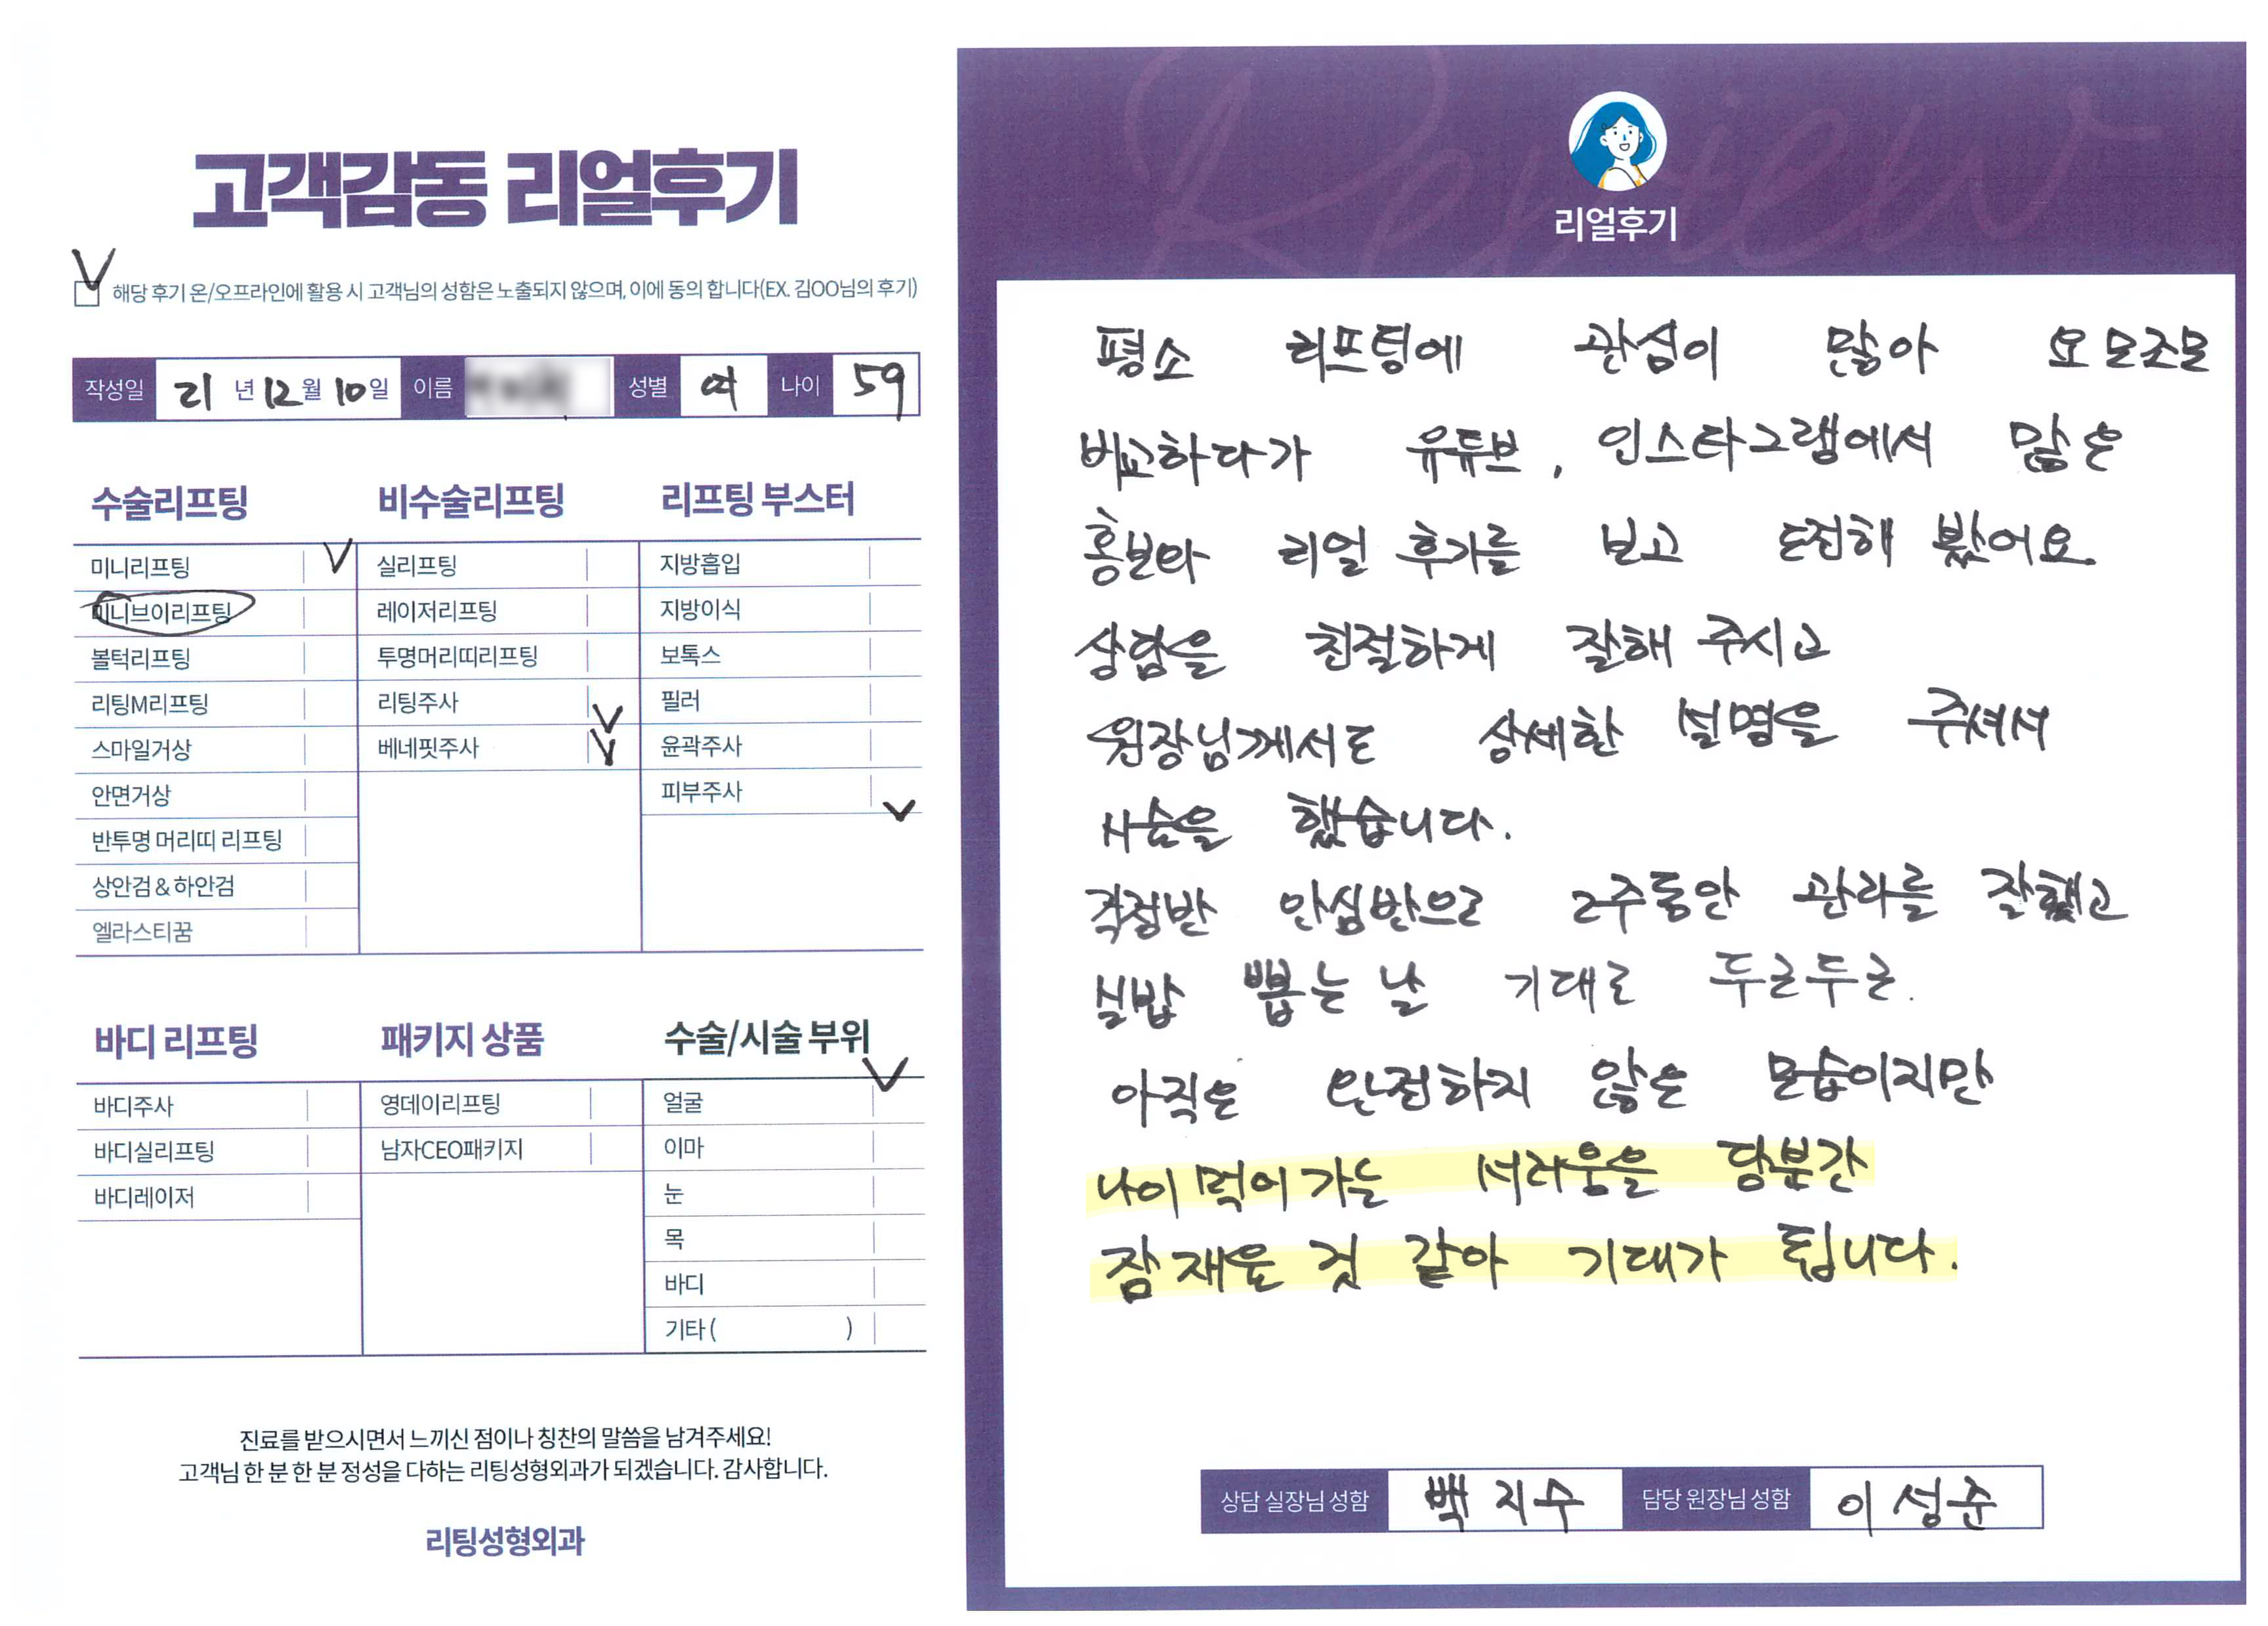 고객감동 리얼후기
해당 후기 온/오프라인에 활용 시 고객님의 성함은 노출되지 않으며, 이에 동의 합니다(EX. 김OO님의 후기)
작성일 21 년 12 월 10 일 이름 성별 여 나이 59
수술리프팅 비수술리프팅 리프팅 부스터
미니리프팅 실리프팅 지방흡입
미니브이리프팅 레이저리프팅 지방이식
볼턱리프팅 투명머리띠리프팅 보톡스
리팅M리프팅 리팅주사 필러
스마일거상 베네핏주사 윤곽주사
안면거상 피부주사
반투명 머리띠 리프팅
상안검 & 하안검
엘라스티꿈
바디 리프팅 패키지 상품 수술/시술 부위
바디주사 영데이리프팅 얼굴
바디실리프팅 남자CEO패키지 이마
바디레이저 눈
목
바디
기타 ( )
진료를 받으시면서 느끼신 점이나 칭찬의 말씀을 남겨주세요!
고객님 한 분 한 분 정성을 다하는 리팅성형외과가 되겠습니다. 감사합니다.
리팅성형외과
Review
리얼후기
평소 리프팅에 관심이 많아 요모조모
비교하다가 유튜브, 인스타그램에서 많은
홍보와 리얼 후기를 보고 도전해 봤어요.
상담을 친절하게 잘해 주시고
원장님께서도 상세한 설명을 주셔서
시술을 했습니다.
걱정반 안심반으로 2주동안 관리를 잘했고
실밥 뽑는 날 기대로 두근두근.
아직은 완전하지 않은 모습이지만
나이 먹어 가는 서러움을 당분간
잠재울 것 같아 기대가 됩니다.
상담 실장님 성함 백지수 담당 원장님 성함 이성준